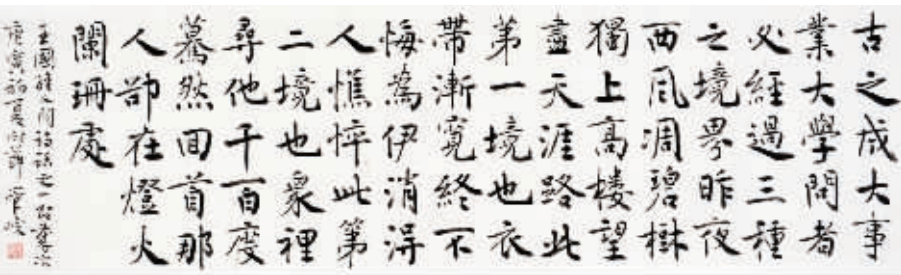 古之成大事
業大學問者
必經過三種
之境界昨夜
西風凋碧樹
獨上高樓望
盡天涯路此
第一境也衣
帶漸寬終不
悔為伊消得
人憔悴此第
二境也衆裡
尋他千百度
驀然回首那
人卻在燈火
闌珊處
王國維人間詞話之一
庚寅初夏時節 管峻